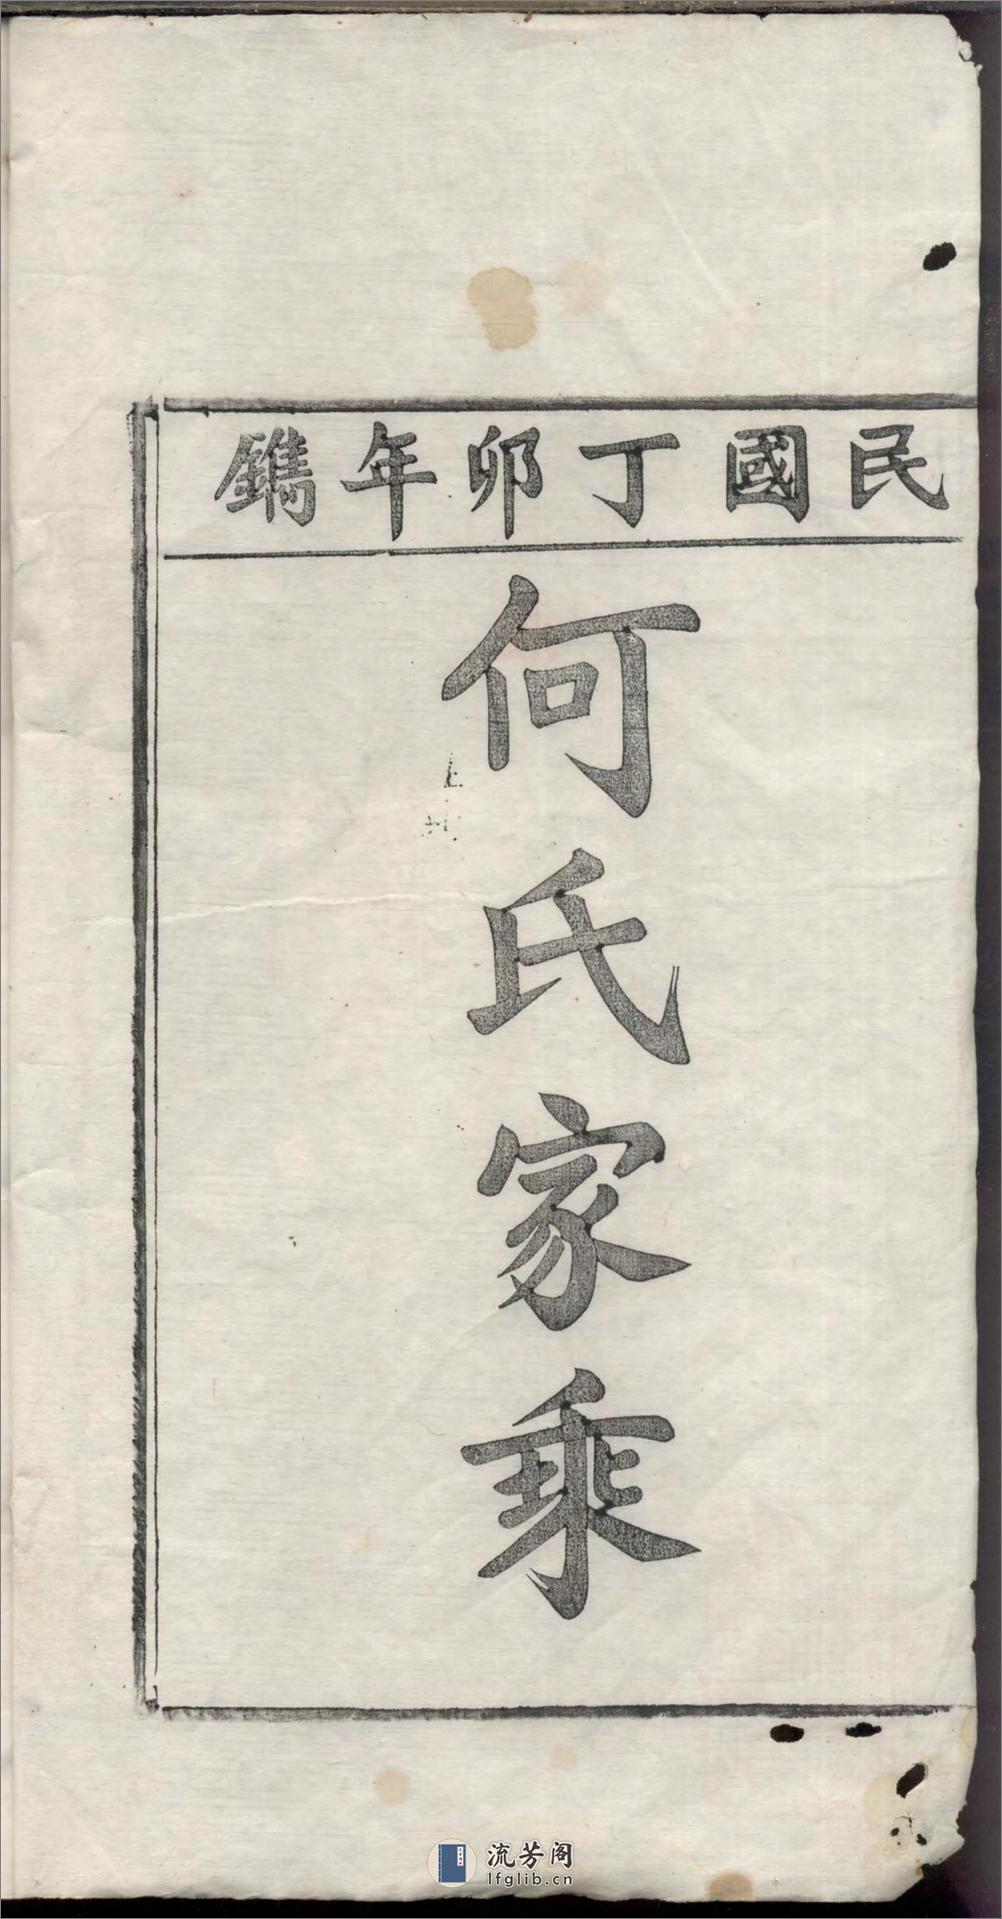 民國丁卯年鐫
何氏家乘
流芳阁
lfglib.cn